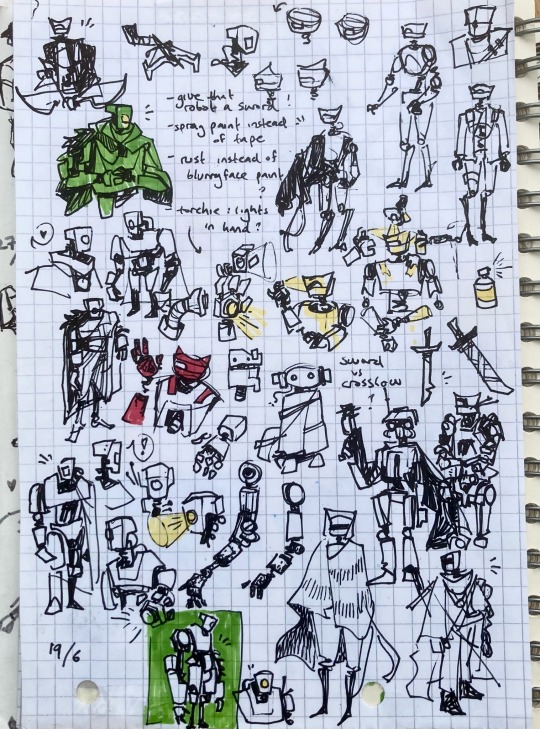 - give that
robot a sword!
- spray paint instead
of tape
- rust instead of
blurryface paint
?
- torchie : lights
in hand?
sword
vs
crossbow
?
!
19/6
27